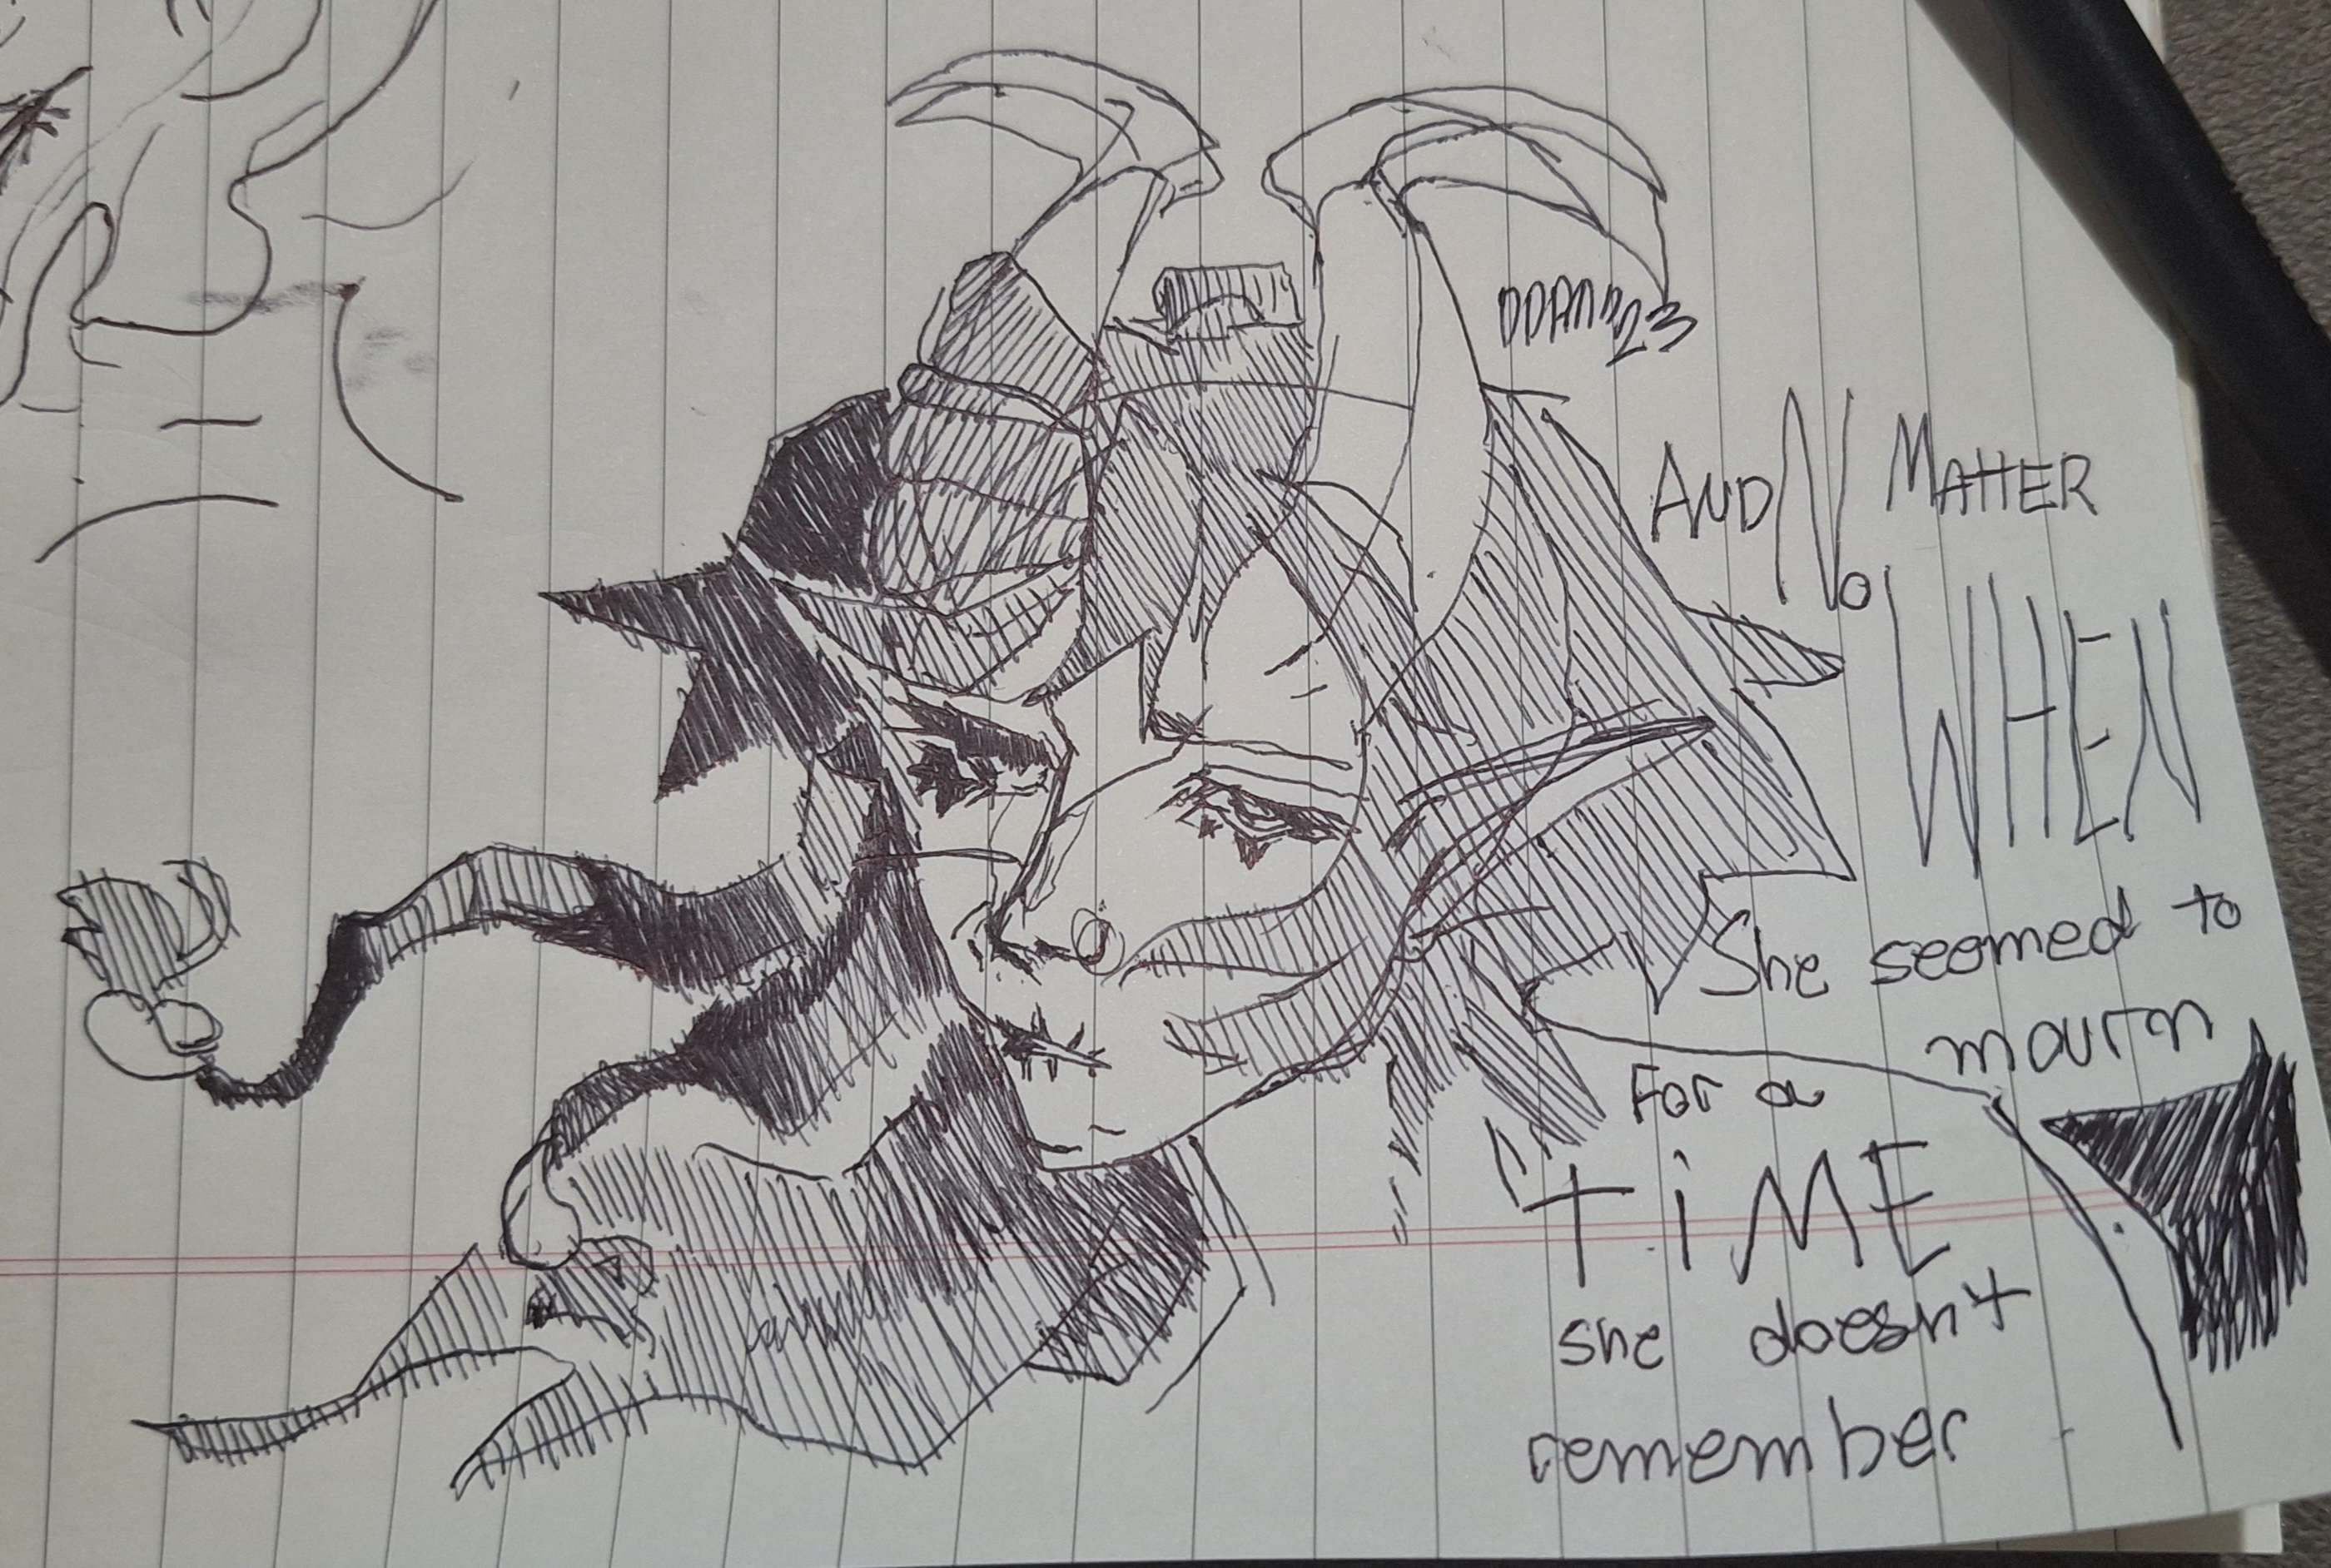 AND No MATTER
WHEN
She seemed to
mourn
For a
TiME
she doesn't
remember